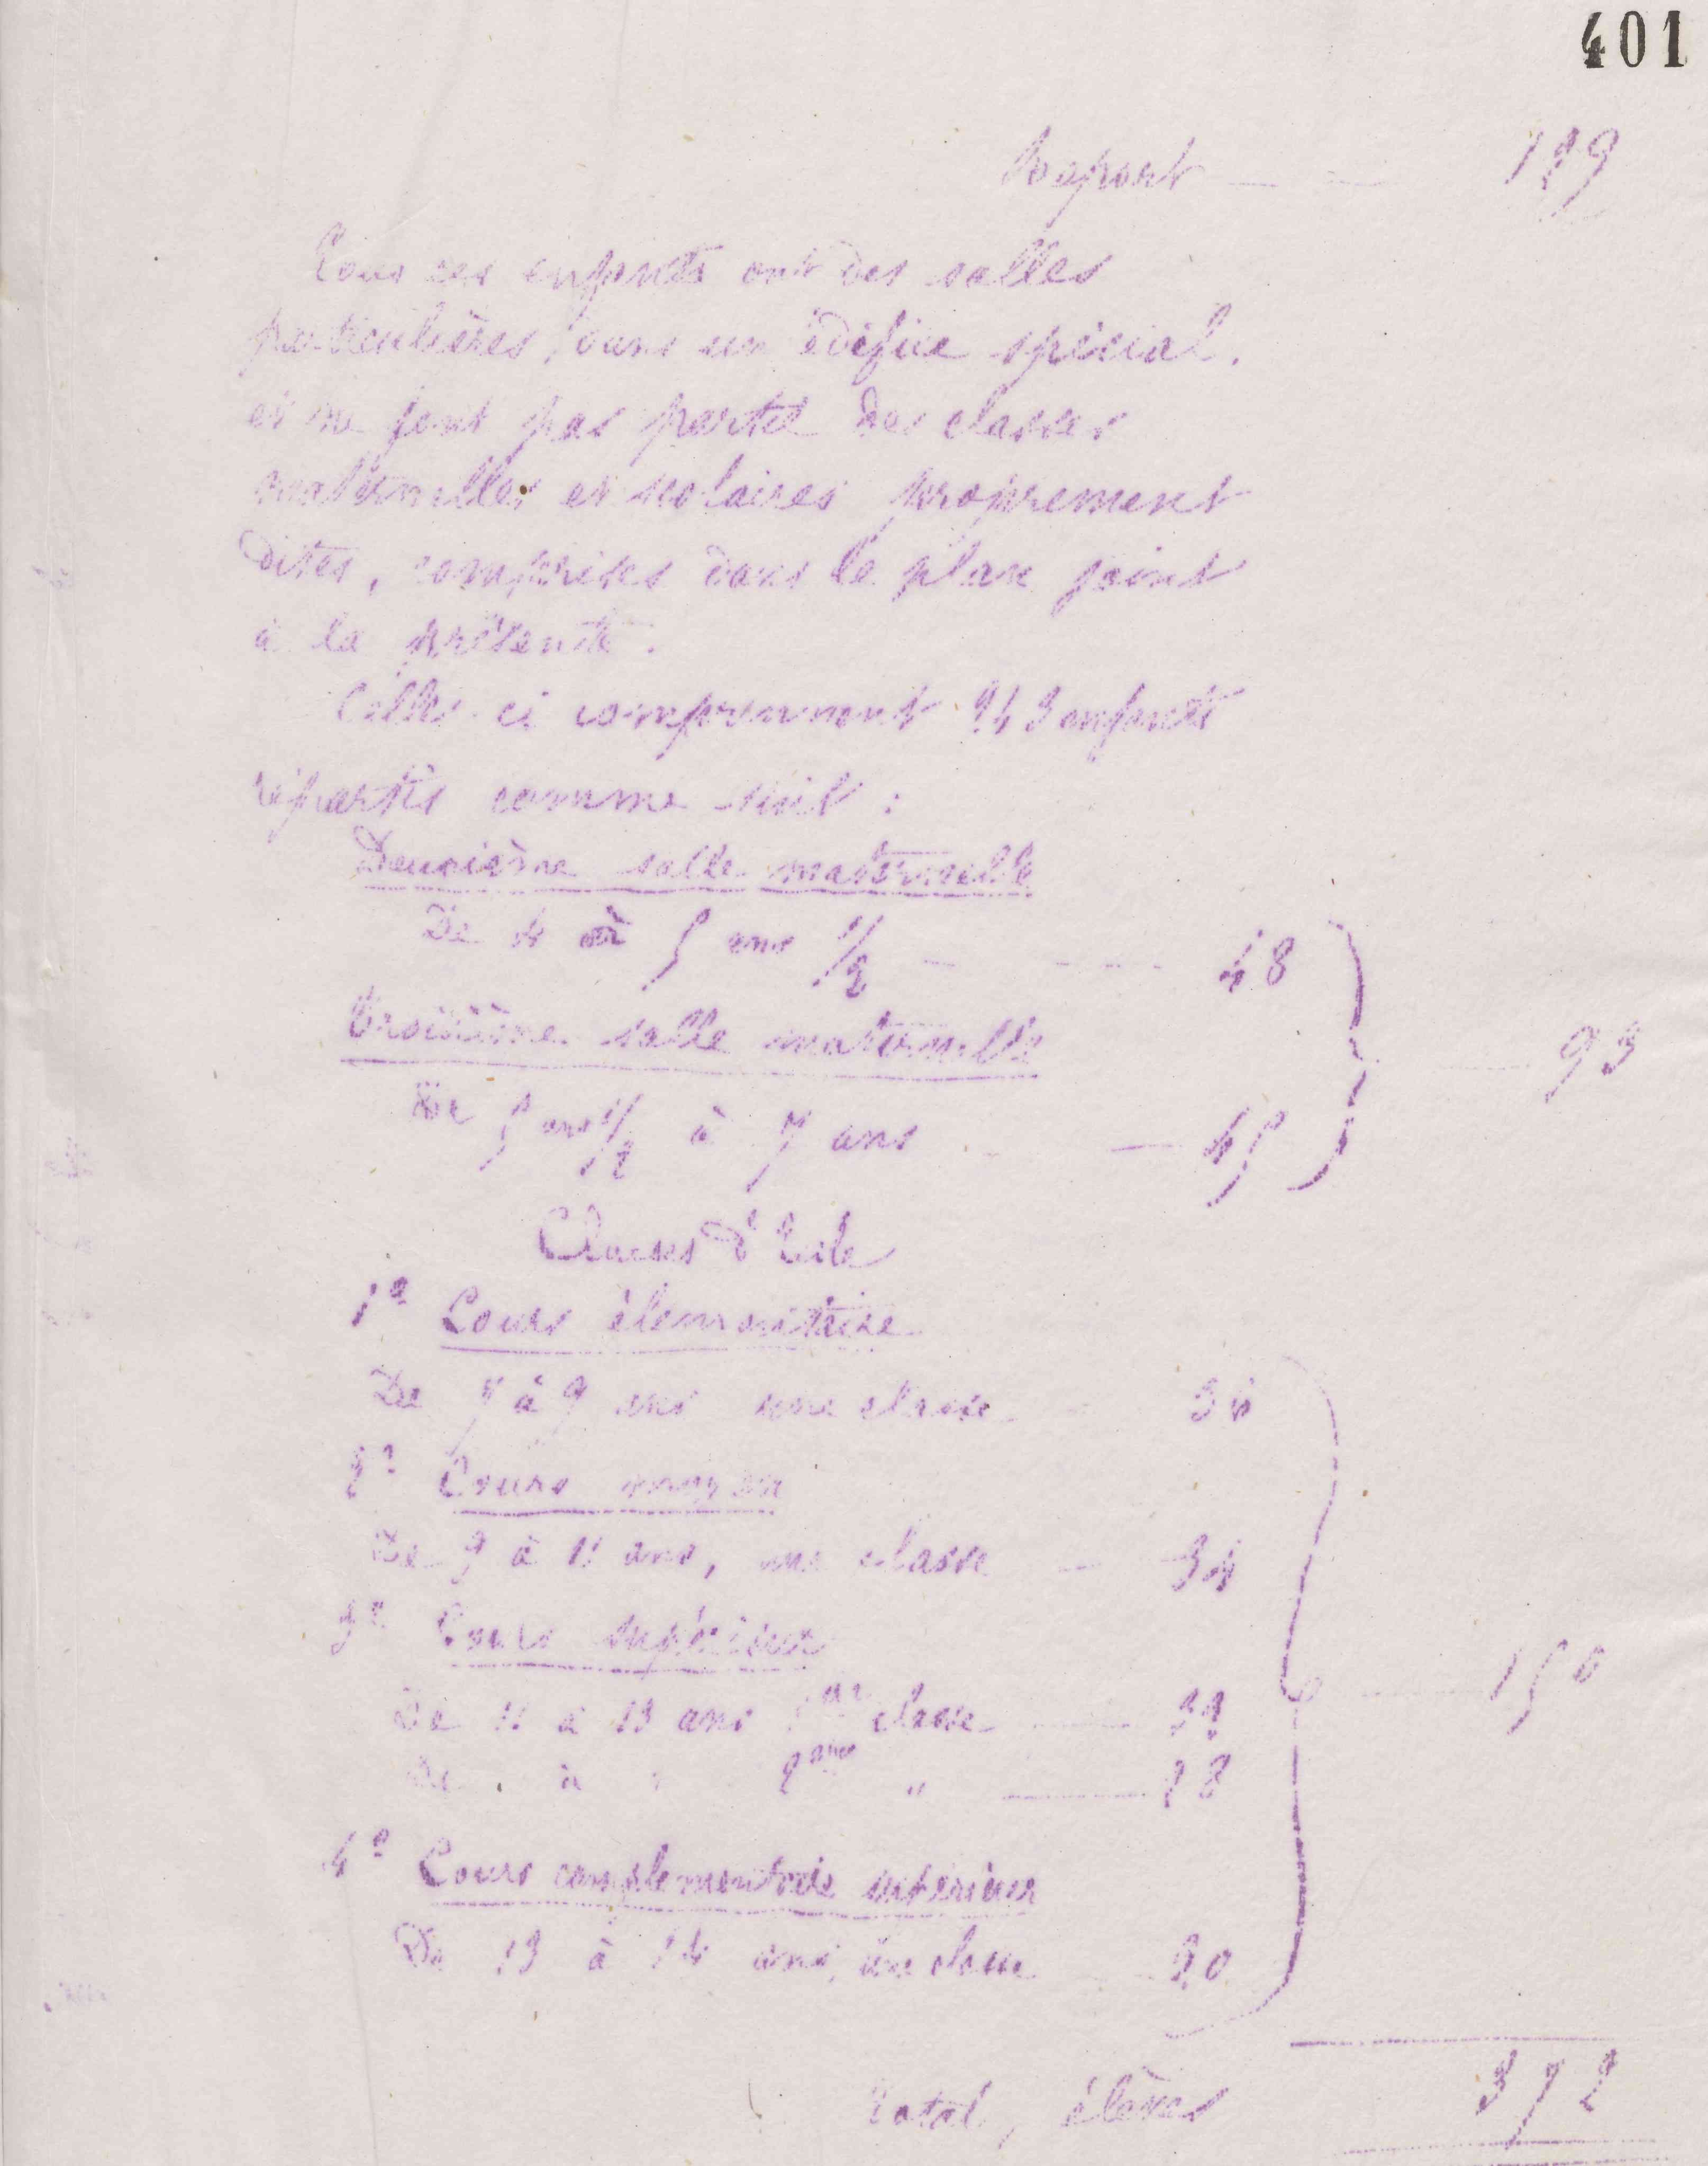 401
Report — — 129
Tous ces enfants ont des salles
particulières, dans un édifice spécial.
et ne font pas partie des classes
maternelles et scolaires proprement
dites, comprises dans le plan joint
à la présente.
Celles-ci comprennent 243 enfants
répartis comme suit :
Deuxième salle maternelle
De 4 à 5 ans 1/2 — 48
Troisième salle maternelle
93
De 5 ans 1/2 à 7 ans — 45
Classes d'Ecole
1º Cours élémentaire
De 7 à 9 ans une classe 36
2º Cours moyen
De 9 à 11 ans, une classe — 34
3º Cours supérieur
150
De 11 à 13 ans 1ère classe — 32
De " à " 2ème " — 28
4º Cours complementaire supérieur
De 13 à 14 ans, une classe 20
Total, élèves 372